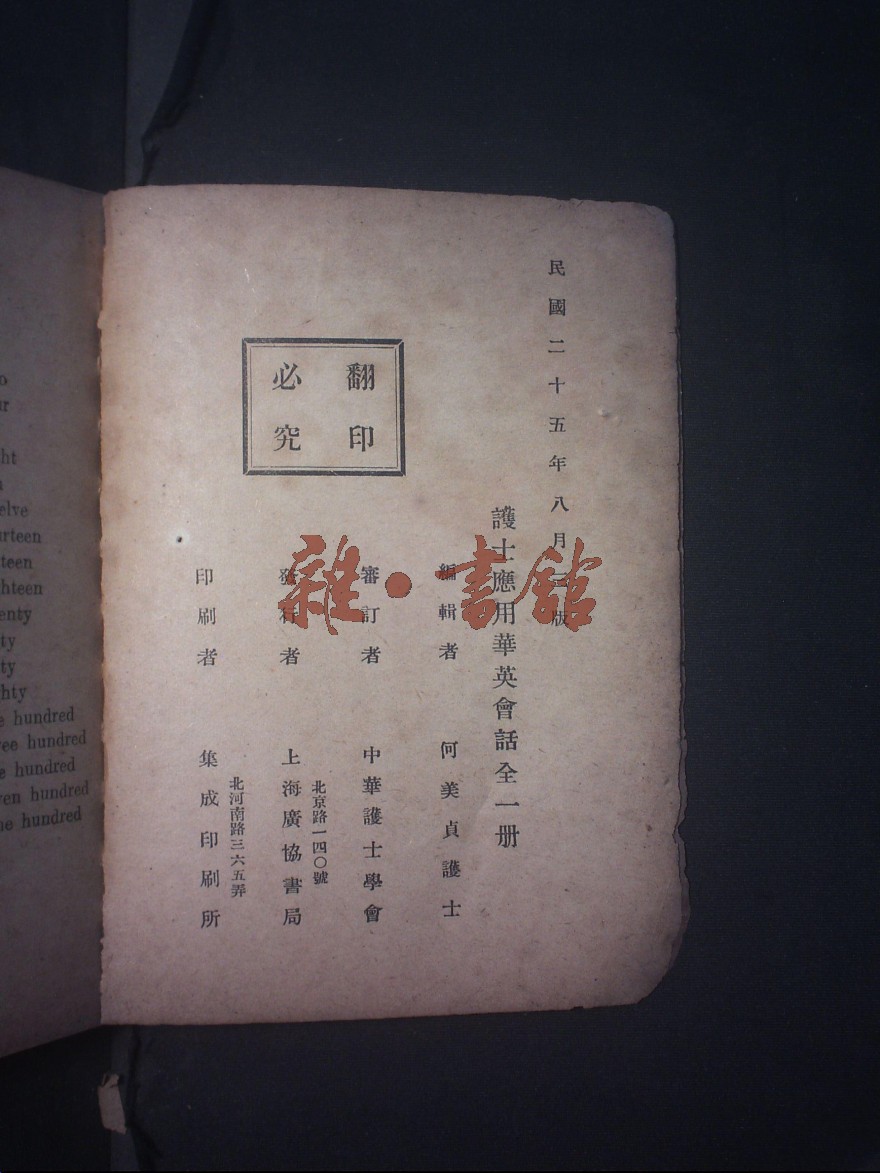 民國二十五年八月三版
護士應用華英會話全一册
編輯者 何美貞護士
審訂者 中華護士學會
發行者 上海廣協書局
北京路一四〇號
印刷者 集成印刷所
北河南路三六五弄
翻印
必究
雜·書館
ht
elve
urteen
teen
hteen
enty
ty
ty
hty
e hundred
ree hundred
e hundred
ven hundred
ne hundred